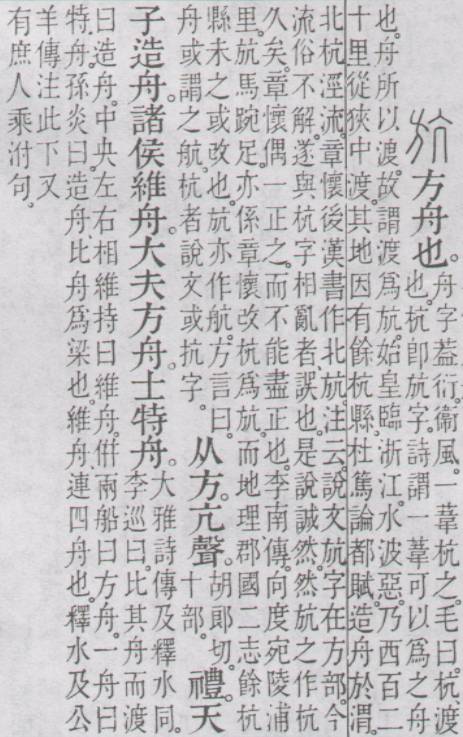 斻方舟也。
舟字葢衍。衞風。一葦杭之。毛曰。杭渡
也。杭卽斻字。詩謂一葦可以爲之舟
也。舟所以渡。故謂渡爲斻。始皇臨浙江。水波惡。乃西百二
十里從狹中渡。其地因有餘杭縣。杜篤論都賦。造舟於渭。
北杭涇流。章懷後漢書作北斻。注云。說文斻字在方部。今
流俗不解。遂與杭字相亂者。誤也。是說誠然。然斻之作杭
久矣。章懷偶一正之。而不能盡正也。李南傳。向度宛陵浦
里斻。馬踠足。亦係章懷改杭爲斻。而地理郡國二志餘杭
縣未之或改也。斻亦作航。方言曰。
舟或謂之航。杭者說文或抗字。
从方亢聲。
胡郎切。
十部。
禮。天
子造舟。諸侯維舟。大夫方舟。士特舟。
大雅詩傳及釋水同。
李巡曰。比其舟而渡
曰造舟。中央左右相維持曰維舟。倂兩船曰方舟。一舟曰
特舟。孫炎曰。造舟比舟爲梁也。維舟連四舟也。釋水及公
羊傳注此下又
有庶人乘泭句。